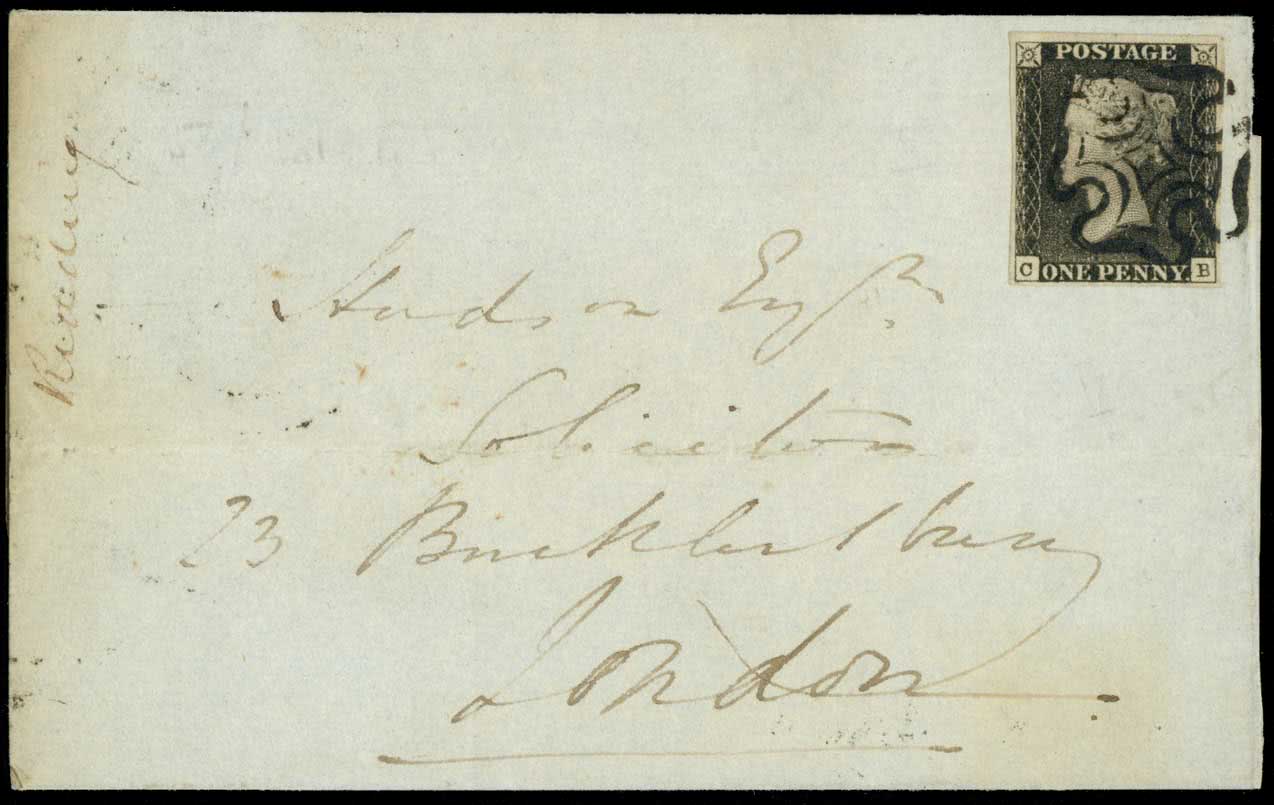 POSTAGE
C ONE PENNY B
Reading
Hudson Esqr.
Solicitor
23 Bucklersbury
London